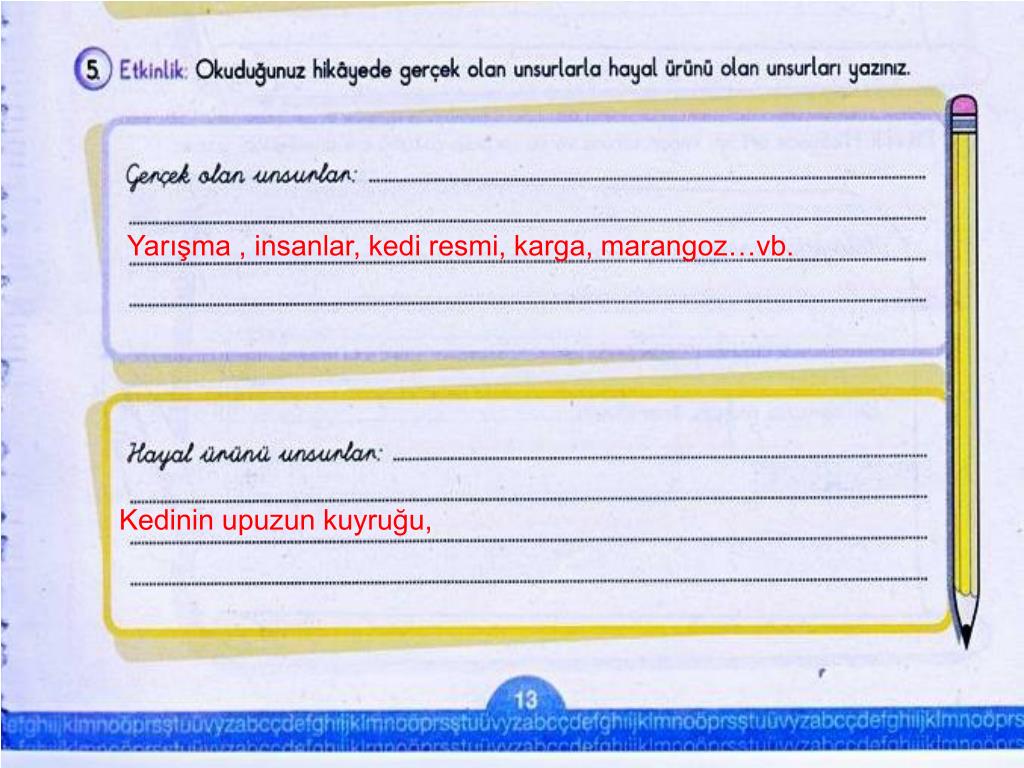 5. Etkinlik: Okuduğunuz hikâyede gerçek olan unsurlarla hayal ürünü olan unsurları yazınız.
Gerçek olan unsurlar:
Yarışma , insanlar, kedi resmi, karga, marangoz…vb.
Hayal ürünü unsurlar:
Kedinin upuzun kuyruğu,
13